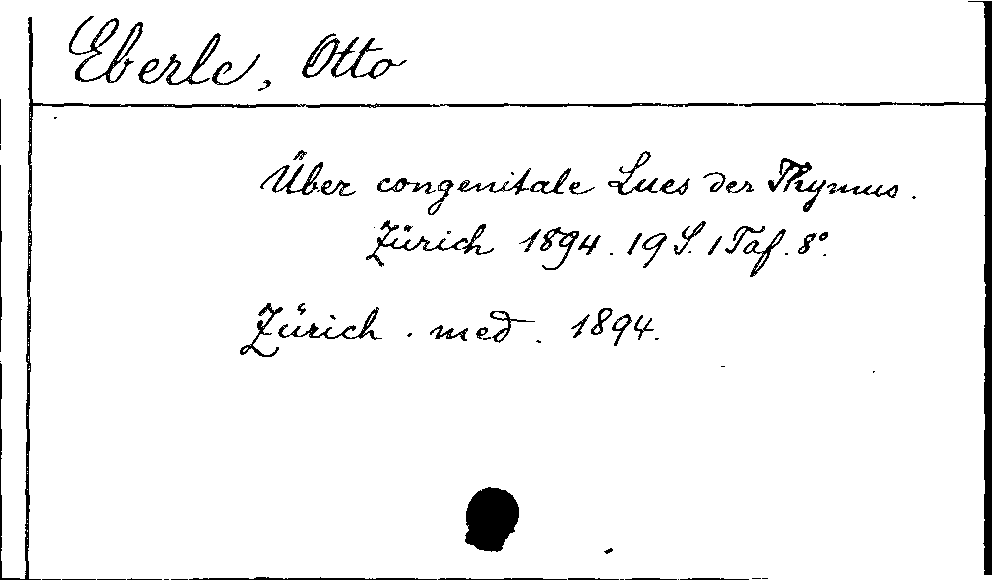 Eberle, Otto
Über congenitale Lues der Thymus.
Zürich 1894. 19 S. 1 Taf. 8°.
Zürich. med. 1894.